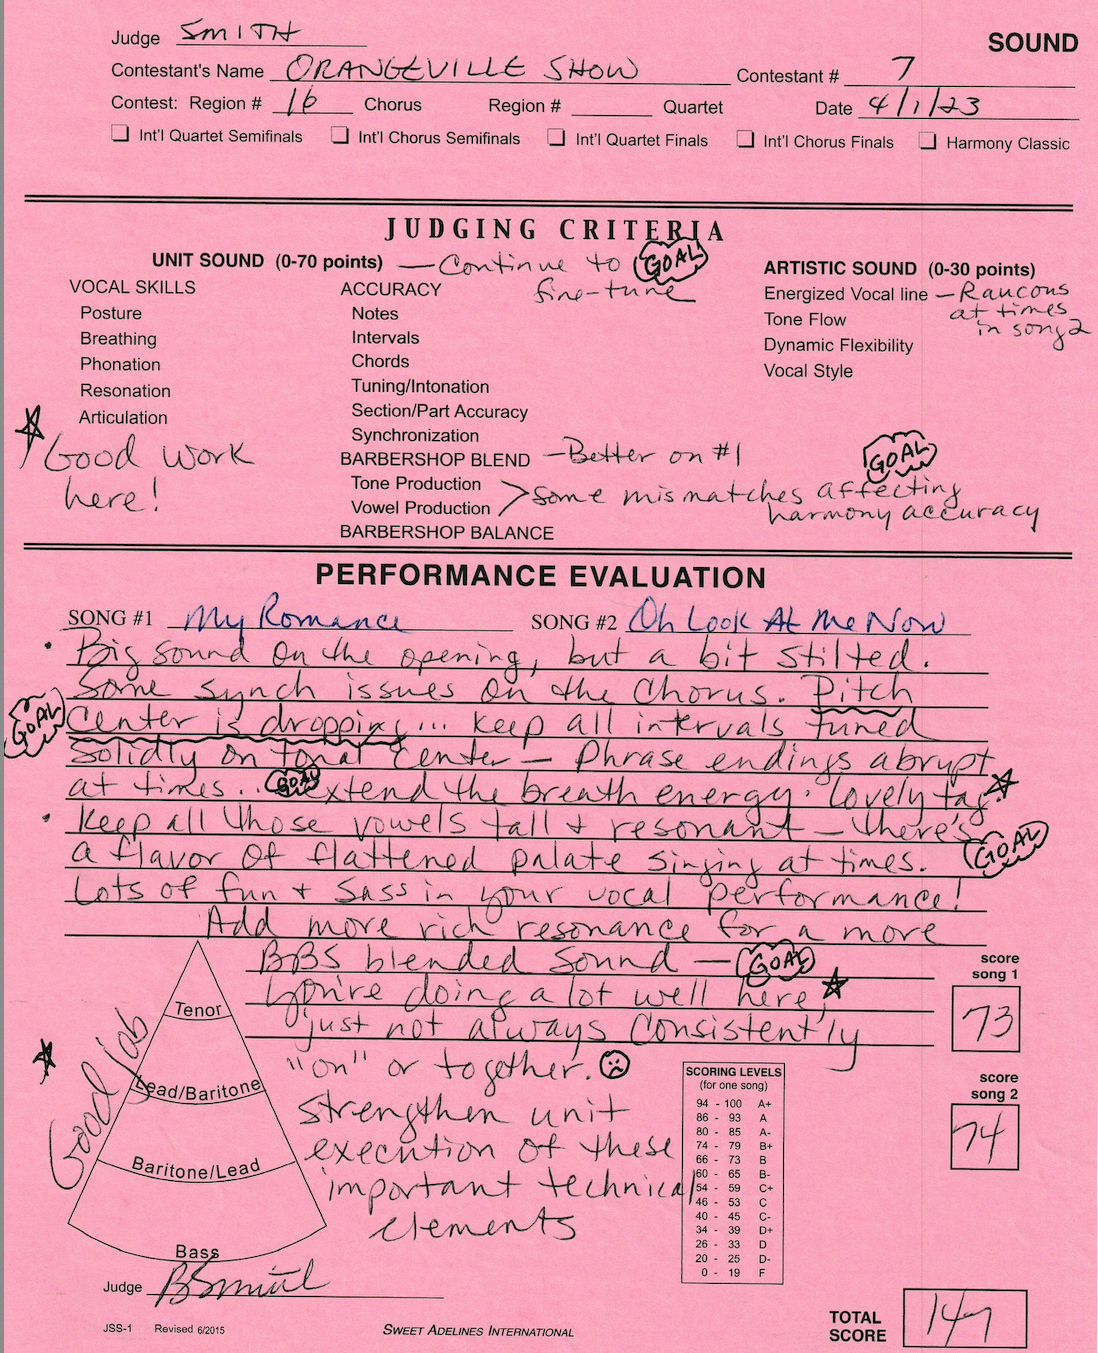 Judge SMITH
SOUND
Contestant's Name ORANGEVILLE SHOW Contestant # 7
Contest: Region # 16 Chorus Region # ____ Quartet Date 4/1/23
❏ Int'l Quartet Semifinals ❏ Int'l Chorus Semifinals ❏ Int'l Quartet Finals ❏ Int'l Chorus Finals ❏ Harmony Classic
JUDGING CRITERIA
UNIT SOUND (0-70 points) — Continue to fine-tune GOAL
VOCAL SKILLS
Posture
Breathing
Phonation
Resonation
Articulation
☆ Good work
here!
ACCURACY
Notes
Intervals
Chords
Tuning/Intonation
Section/Part Accuracy
Synchronization
BARBERSHOP BLEND — Better on #1
Tone Production
Vowel Production > some mismatches affecting GOAL
harmony accuracy
BARBERSHOP BALANCE
ARTISTIC SOUND (0-30 points)
Energized Vocal line — Raucous
at times
in song 2
Tone Flow
Dynamic Flexibility
Vocal Style
PERFORMANCE EVALUATION
SONG #1 My Romance SONG #2 Oh Look At Me Now
• Big sound on the opening, but a bit stilted.
Some synch issues on the Chorus. Pitch
GOAL Center is dropping... keep all intervals tuned
solidly on tonal center — Phrase endings abrupt
at times.. GOAL extend the breath energy. Lovely tag. ☆
• Keep all those vowels tall + resonant — there's
a flavor of flattened palate singing at times. GOAL
Lots of fun + Sass in your vocal performance!
Add more rich resonance for a more
BBS blended sound — GOAL
You're doing a lot well here, ☆
just not always consistently
"on" or together. ☹
strengthen unit
execution of these
important technical
elements
☆ Good job
Tenor
Lead/Baritone
Baritone/Lead
Bass
score
song 1
73
score
song 2
74
SCORING LEVELS
(for one song)
94 - 100 A+
86 - 93 A
80 - 85 A-
74 - 79 B+
66 - 73 B
60 - 65 B-
54 - 59 C+
46 - 53 C
40 - 45 C-
34 - 39 D+
26 - 33 D
20 - 25 D-
0 - 19 F
Judge BSmith
JSS-1 Revised 6/2015
SWEET ADELINES INTERNATIONAL
TOTAL
SCORE
147